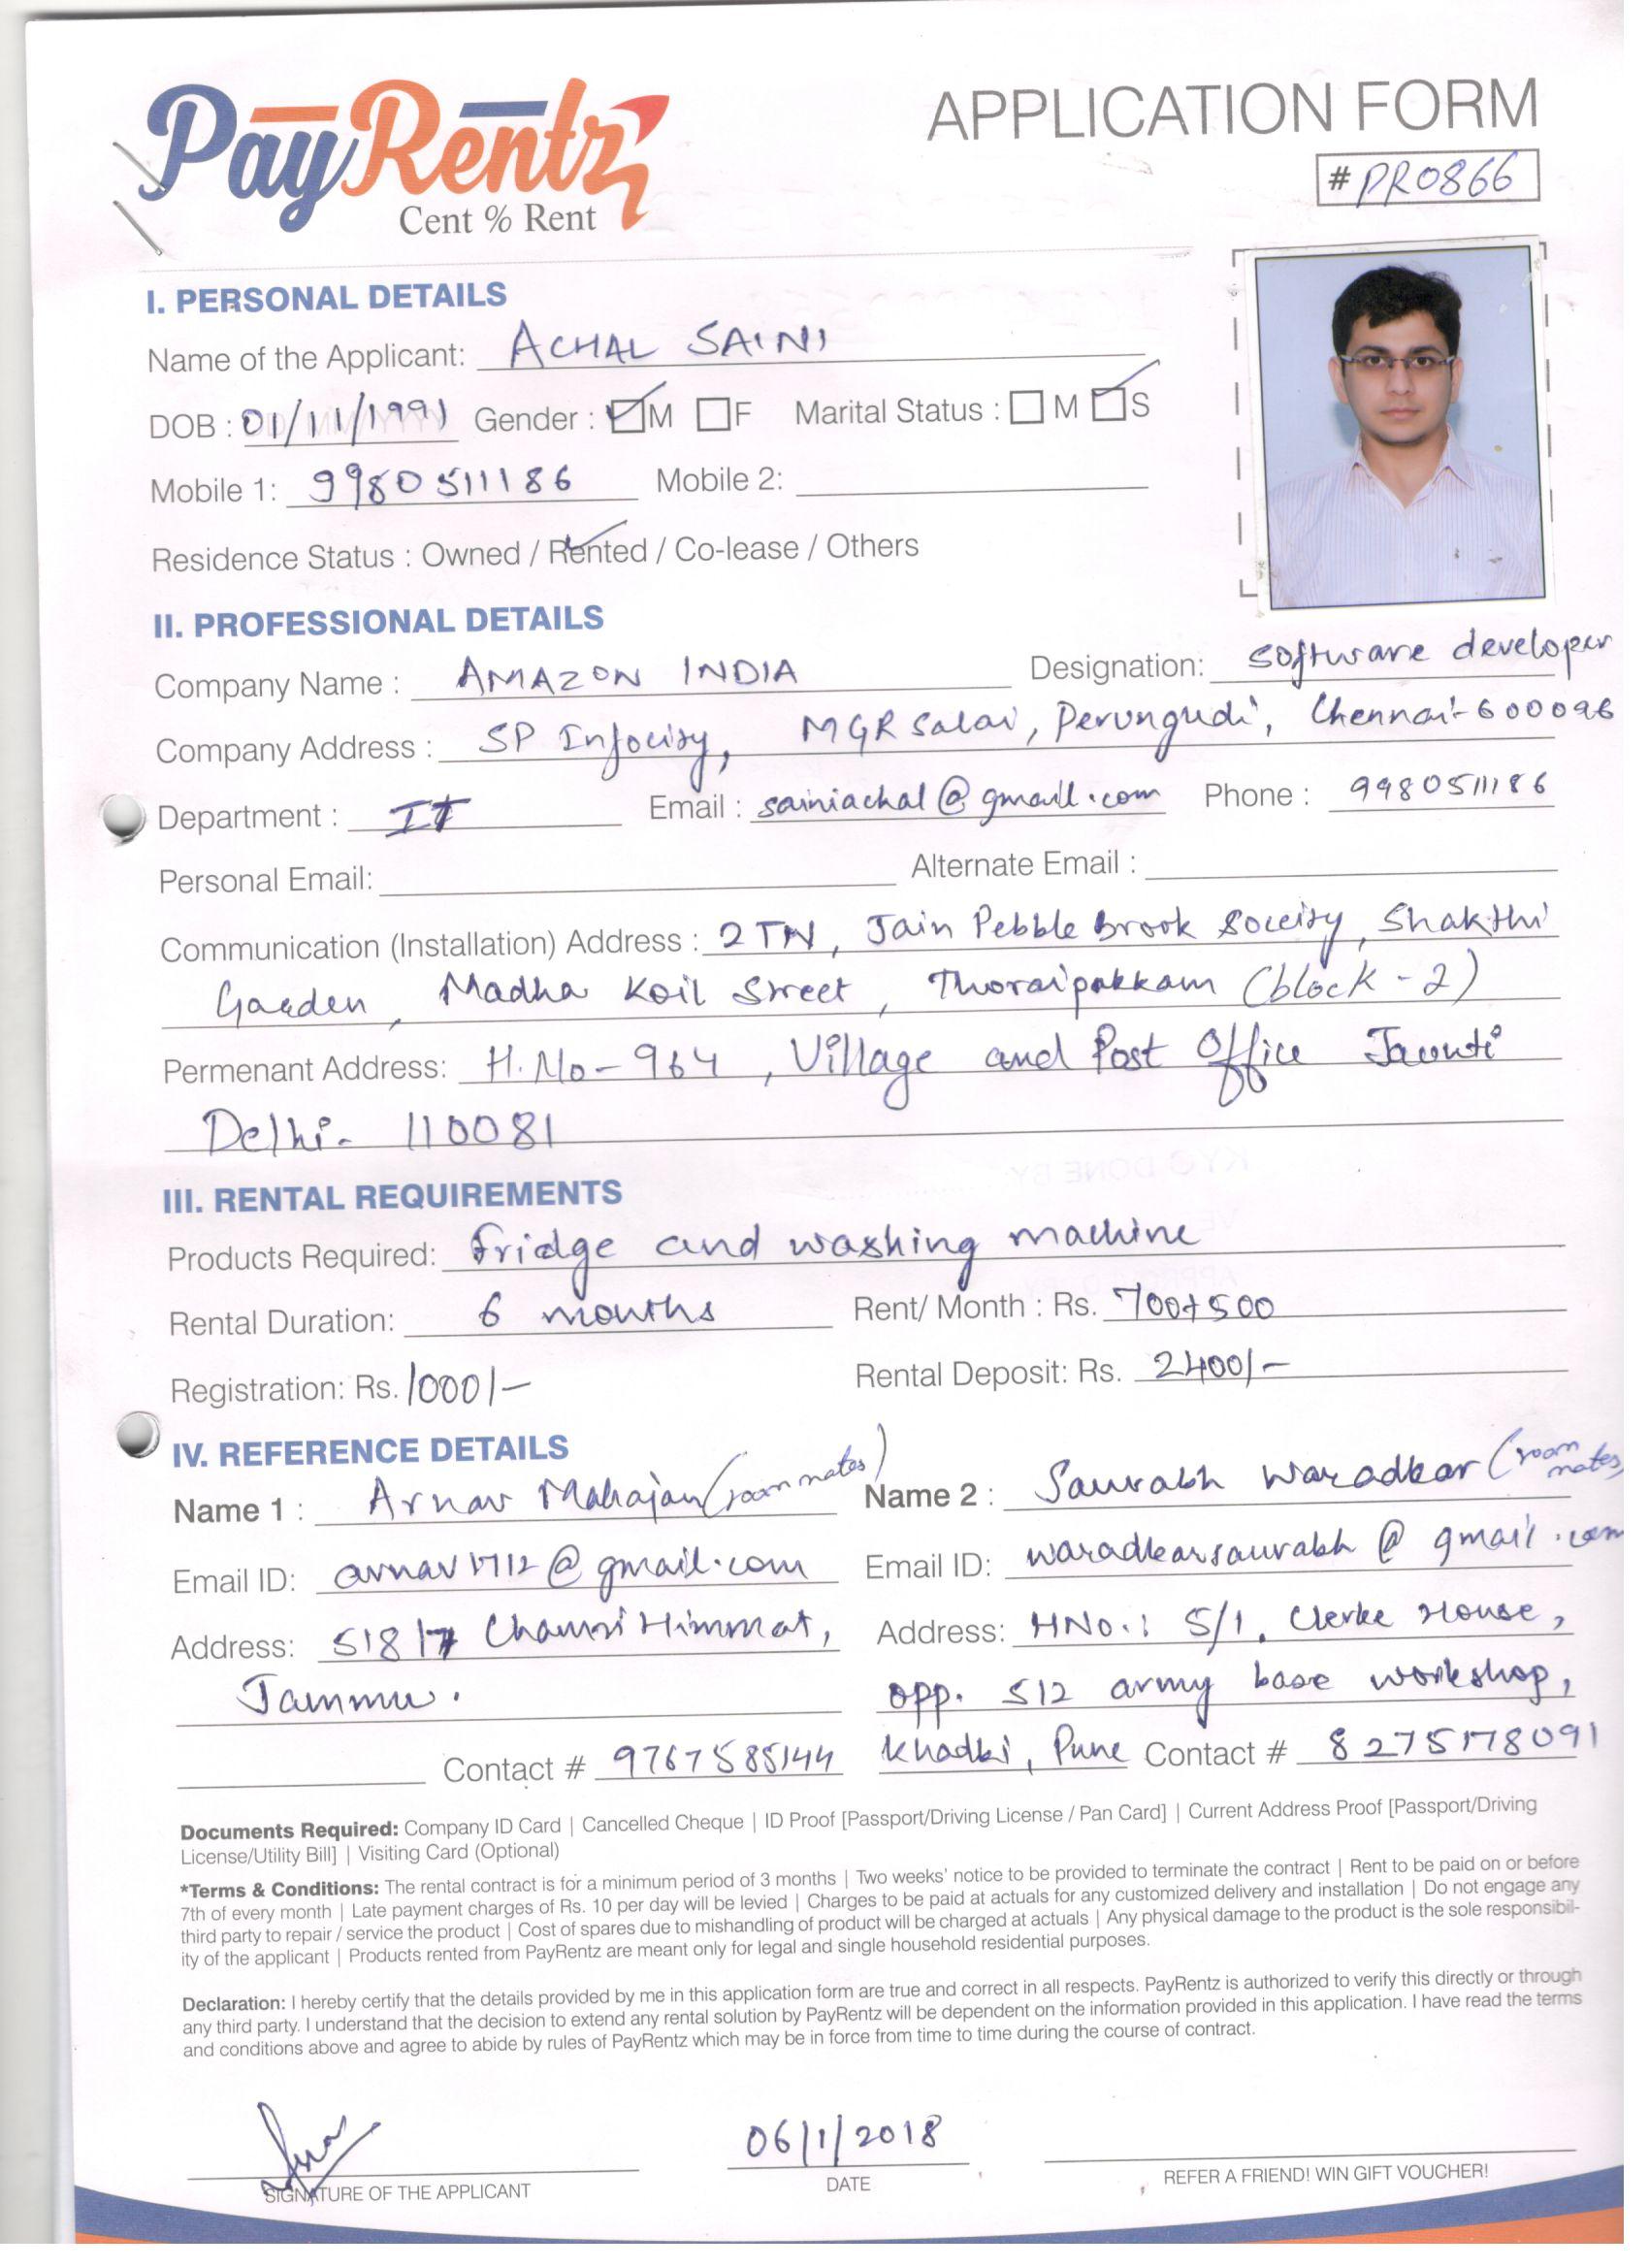 PayRentz
Cent % Rent
APPLICATION FORM
#PR0866
I. PERSONAL DETAILS
Name of the Applicant: ACHAL SAINI
DOB : 01/11/1991 Gender : M F Marital Status : M S
Mobile 1: 9980511186 Mobile 2:
Residence Status : Owned / Rented / Co-lease / Others
II. PROFESSIONAL DETAILS
Company Name : AMAZON INDIA Designation: software developer
Company Address : SP Infocity, MGR Salai, Perungudi, Chennai-600096
Department : IT Email : sainiachal@gmail.com Phone : 9980511186
Personal Email: Alternate Email :
Communication (Installation) Address : 2TN, Jain Pebble brook Soceity, Shakthi
Garden, Madha Koil Street, Thoraipakkam (block-2)
Permenant Address: H.No-964, Village and Post Office Jaunti
Delhi- 110081
III. RENTAL REQUIREMENTS
Products Required: fridge and washing machine
Rental Duration: 6 months Rent/ Month : Rs. 700+500
Registration: Rs. 1000/- Rental Deposit: Rs. 2400/-
IV. REFERENCE DETAILS
Name 1 : Arnav Mahajan (room mates) Name 2 : Saurabh Waradkar (room mates)
Email ID: arnav1712@gmail.com Email ID: waradkarsaurabh@gmail.com
Address: 518/7 Channi Himmat, Address: HNo.: 5/1, Clerke House,
Jammu. opp. 512 army base workshop,
Contact # 9767585144 Khadki, Pune Contact # 8275178091
Documents Required: Company ID Card | Cancelled Cheque | ID Proof [Passport/Driving License / Pan Card] | Current Address Proof [Passport/Driving
License/Utility Bill] | Visiting Card (Optional)
*Terms & Conditions: The rental contract is for a minimum period of 3 months | Two weeks' notice to be provided to terminate the contract | Rent to be paid on or before
7th of every month | Late payment charges of Rs. 10 per day will be levied | Charges to be paid at actuals for any customized delivery and installation | Do not engage any
third party to repair / service the product | Cost of spares due to mishandling of product will be charged at actuals | Any physical damage to the product is the sole responsibil-
ity of the applicant | Products rented from PayRentz are meant only for legal and single household residential purposes.
Declaration: I hereby certify that the details provided by me in this application form are true and correct in all respects. PayRentz is authorized to verify this directly or through
any third party. I understand that the decision to extend any rental solution by PayRentz will be dependent on the information provided in this application. I have read the terms
and conditions above and agree to abide by rules of PayRentz which may be in force from time to time during the course of contract.
06/1/2018
SIGNATURE OF THE APPLICANT DATE REFER A FRIEND! WIN GIFT VOUCHER!